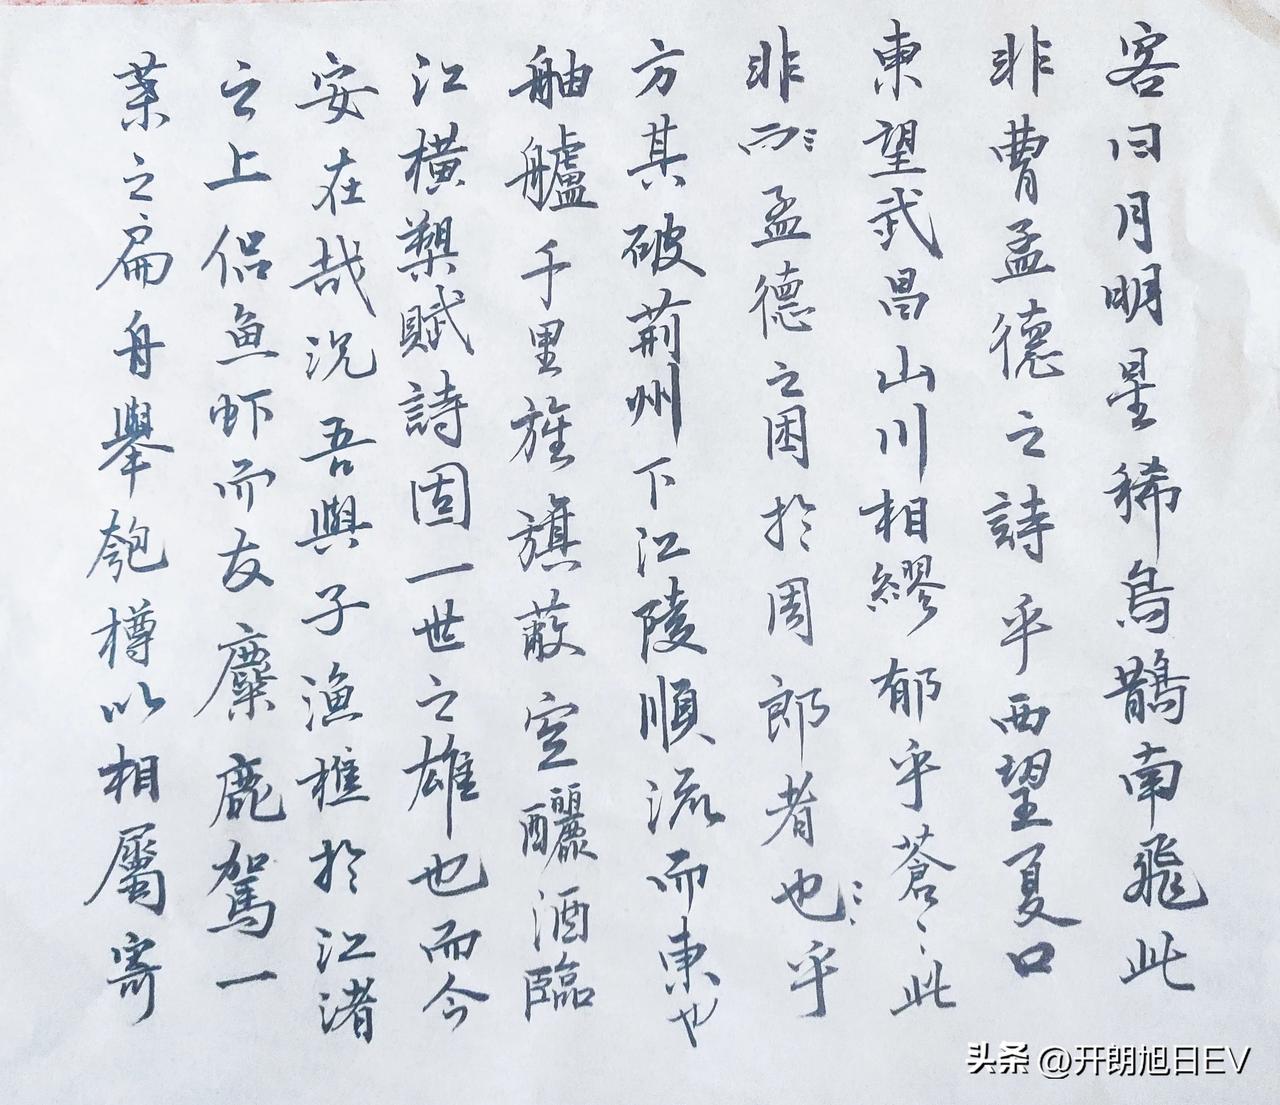 客曰月明星稀烏鵲南飛此
非曹孟德之詩乎西望夏口
東望武昌山川相繆郁乎蒼〻此
非而孟德之困於周郎者也乎
方其破荊州下江陵順流而東也
舳艫千里旌旗蔽空釃酒臨
江橫槊賦詩固一世之雄也而今
安在哉況吾與子漁樵於江渚
之上侶魚虾而友麋鹿駕一
葉之扁舟舉匏樽以相屬寄
头条 @开朗旭日EV